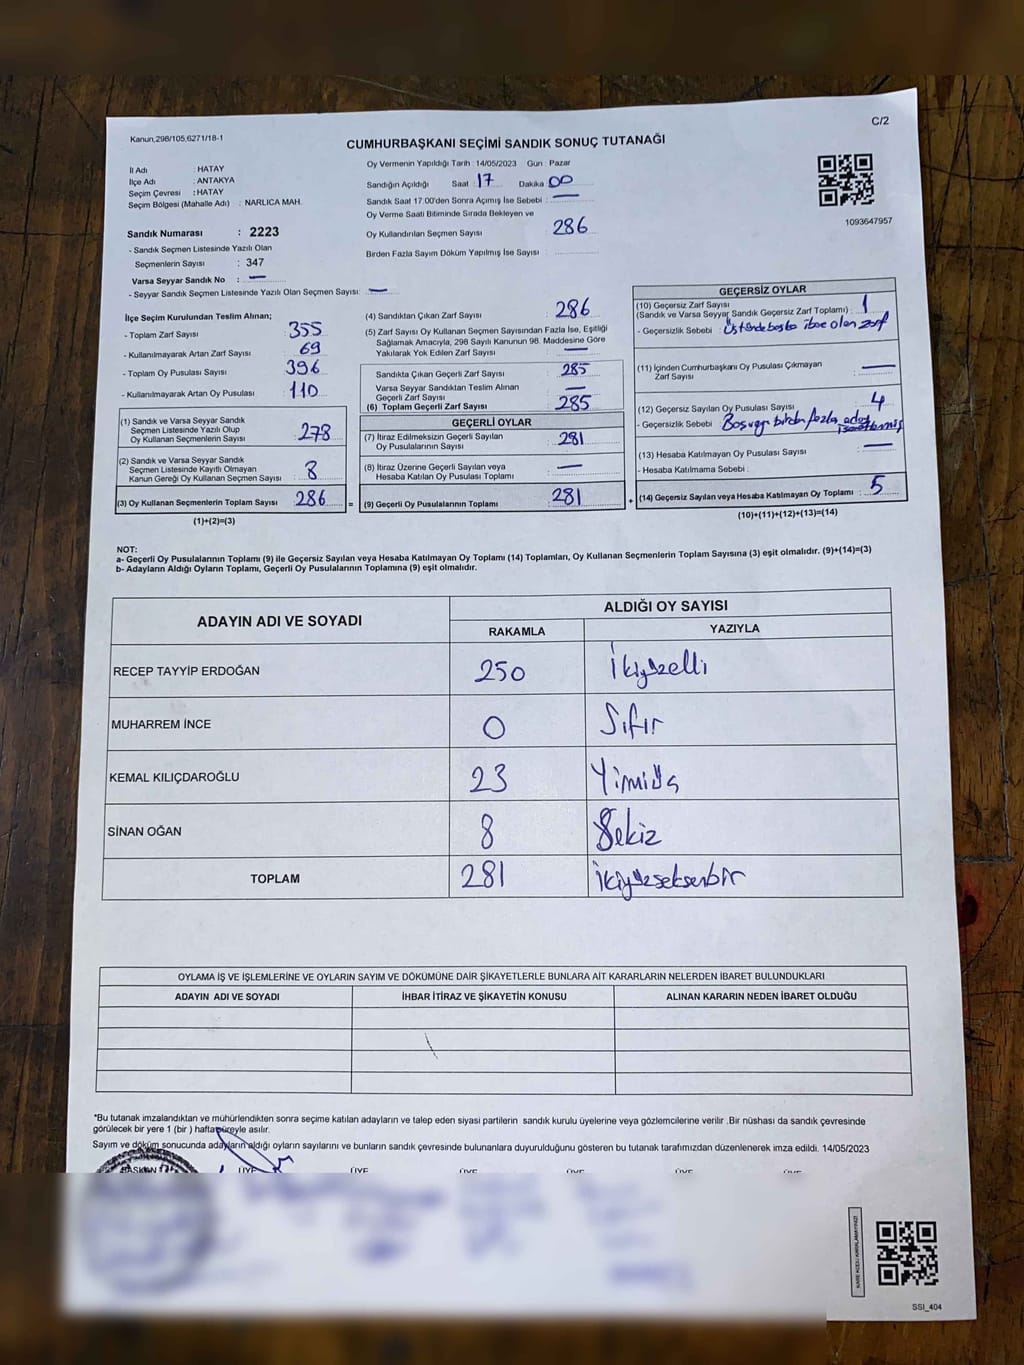 Kanun,298/105;6271/18-1
C/2
CUMHURBAŞKANI SEÇİMİ SANDIK SONUÇ TUTANAĞI
İl Adı : HATAY
İlçe Adı : ANTAKYA
Seçim Çevresi : HATAY
Seçim Bölgesi (Mahalle Adı) : NARLICA MAH.
Oy Vermenin Yapıldığı Tarih : 14/05/2023 Gün : Pazar
Sandığın Açıldığı Saat : 17 Dakika 00
Sandık Saat 17.00'den Sonra Açımış İse Sebebi : —
Oy Verme Saati Bitiminde Sırada Bekleyen ve
Oy Kullandırılan Seçmen Sayısı 286
Birden Fazla Sayım Döküm Yapılmış İse Sayısı
1093647957
Sandık Numarası : 2223
- Sandık Seçmen Listesinde Yazılı Olan
Seçmenlerin Sayısı : 347
Varsa Seyyar Sandık No : —
- Seyyar Sandık Seçmen Listesinde Yazılı Olan Seçmen Sayısı: —
İlçe Seçim Kurulundan Teslim Alınan;
- Toplam Zarf Sayısı 355
- Kullanılmayarak Artan Zarf Sayısı : 69
- Toplam Oy Pusulası Sayısı 396
- Kullanılmayarak Artan Oy Pusulası : 110
(1) Sandık ve Varsa Seyyar Sandık
Seçmen Listesinde Yazılı Olup
Oy Kullanan Seçmenlerin Sayısı : 278
(2) Sandık ve Varsa Seyyar Sandık
Seçmen Listesinde Kayıtlı Olmayan
Kanun Gereği Oy Kullanan Seçmen Sayısı : 8
(3) Oy Kullanan Seçmenlerin Toplam Sayısı : 286 =
(1)+(2)=(3)
(4) Sandıktan Çıkan Zarf Sayısı : 286
(5) Zarf Sayısı Oy Kullanan Seçmen Sayısından Fazla İse, Eşitliği
Sağlamak Amacıyla, 298 Sayılı Kanunun 98. Maddesine Göre
Yakılarak Yok Edilen Zarf Sayısı : —
Sandıkta Çıkan Geçerli Zarf Sayısı : 285
Varsa Seyyar Sandıktan Teslim Alınan
Geçerli Zarf Sayısı : —
(6) Toplam Geçerli Zarf Sayısı : 285
GEÇERLİ OYLAR
(7) İtiraz Edilmeksizin Geçerli Sayılan
Oy Pusulalarının Sayısı : 281
(8) İtiraz Üzerine Geçerli Sayılan veya
Hesaba Katılan Oy Pusulası Toplamı : —
(9) Geçerli Oy Pusulalarının Toplamı : 281 +
GEÇERSİZ OYLAR
(10) Geçersiz Zarf Sayısı
(Sandık ve Varsa Seyyar Sandık Geçersiz Zarf Toplamı) : 1
- Geçersizlik Sebebi : Üstünde başka ibare olan zarf
(11) İçinden Cumhurbaşkanı Oy Pusulası Çıkmayan
Zarf Sayısı : —
(12) Geçersiz Sayılan Oy Pusulası Sayısı : 4
- Geçersizlik Sebebi : Boş veya birden fazla aday
(13) Hesaba Katılmayan Oy Pusulası Sayısı : —
- Hesaba Katılmama Sebebi :
(14) Geçersiz Sayılan veya Hesaba Katılmayan Oy Toplamı : 5
(10)+(11)+(12)+(13)=(14)
NOT:
a- Geçerli Oy Pusulalarının Toplamı (9) ile Geçersiz Sayılan veya Hesaba Katılmayan Oy Toplamı (14) Toplamları, Oy Kullanan Seçmenlerin Toplam Sayısına (3) eşit olmalıdır. (9)+(14)=(3)
b- Adayların Aldığı Oyların Toplamı, Geçerli Oy Pusulalarının Toplamına (9) eşit olmalıdır.
ADAYIN ADI VE SOYADI ALDIĞI OY SAYISI
RAKAMLA YAZIYLA
RECEP TAYYİP ERDOĞAN 250 İkiyüzelli
MUHARREM İNCE 0 Sıfır
KEMAL KILIÇDAROĞLU 23 Yimiüç
SİNAN OĞAN 8 Sekiz
TOPLAM 281 ikiyüzseksenbir
OYLAMA İŞ VE İŞLEMLERİNE VE OYLARIN SAYIM VE DÖKÜMÜNE DAİR ŞİKAYETLERLE BUNLARA AİT KARARLARIN NELERDEN İBARET BULUNDUKLARI
ADAYIN ADI VE SOYADI İHBAR İTİRAZ VE ŞİKAYETİN KONUSU ALINAN KARARIN NEDEN İBARET OLDUĞU
*Bu tutanak imzalandıktan ve mühürlendikten sonra seçime katılan adayların ve talep eden siyasi partilerin sandık kurulu üyelerine veya gözlemcilerine verilir .Bir nüshası da sandık çevresinde
görülecek bir yere 1 (bir ) hafta süreyle asılır.
Sayım ve döküm sonucunda adayların aldığı oyların sayılarını ve bunların sandık çevresinde bulunanlara duyurulduğunu gösteren bu tutanak tarafımızdan düzenlenerek imza edildi. 14/05/2023
BAŞKAN ÜYE ÜYE ÜYE ÜYE ÜYE ÜYE
SSI_404